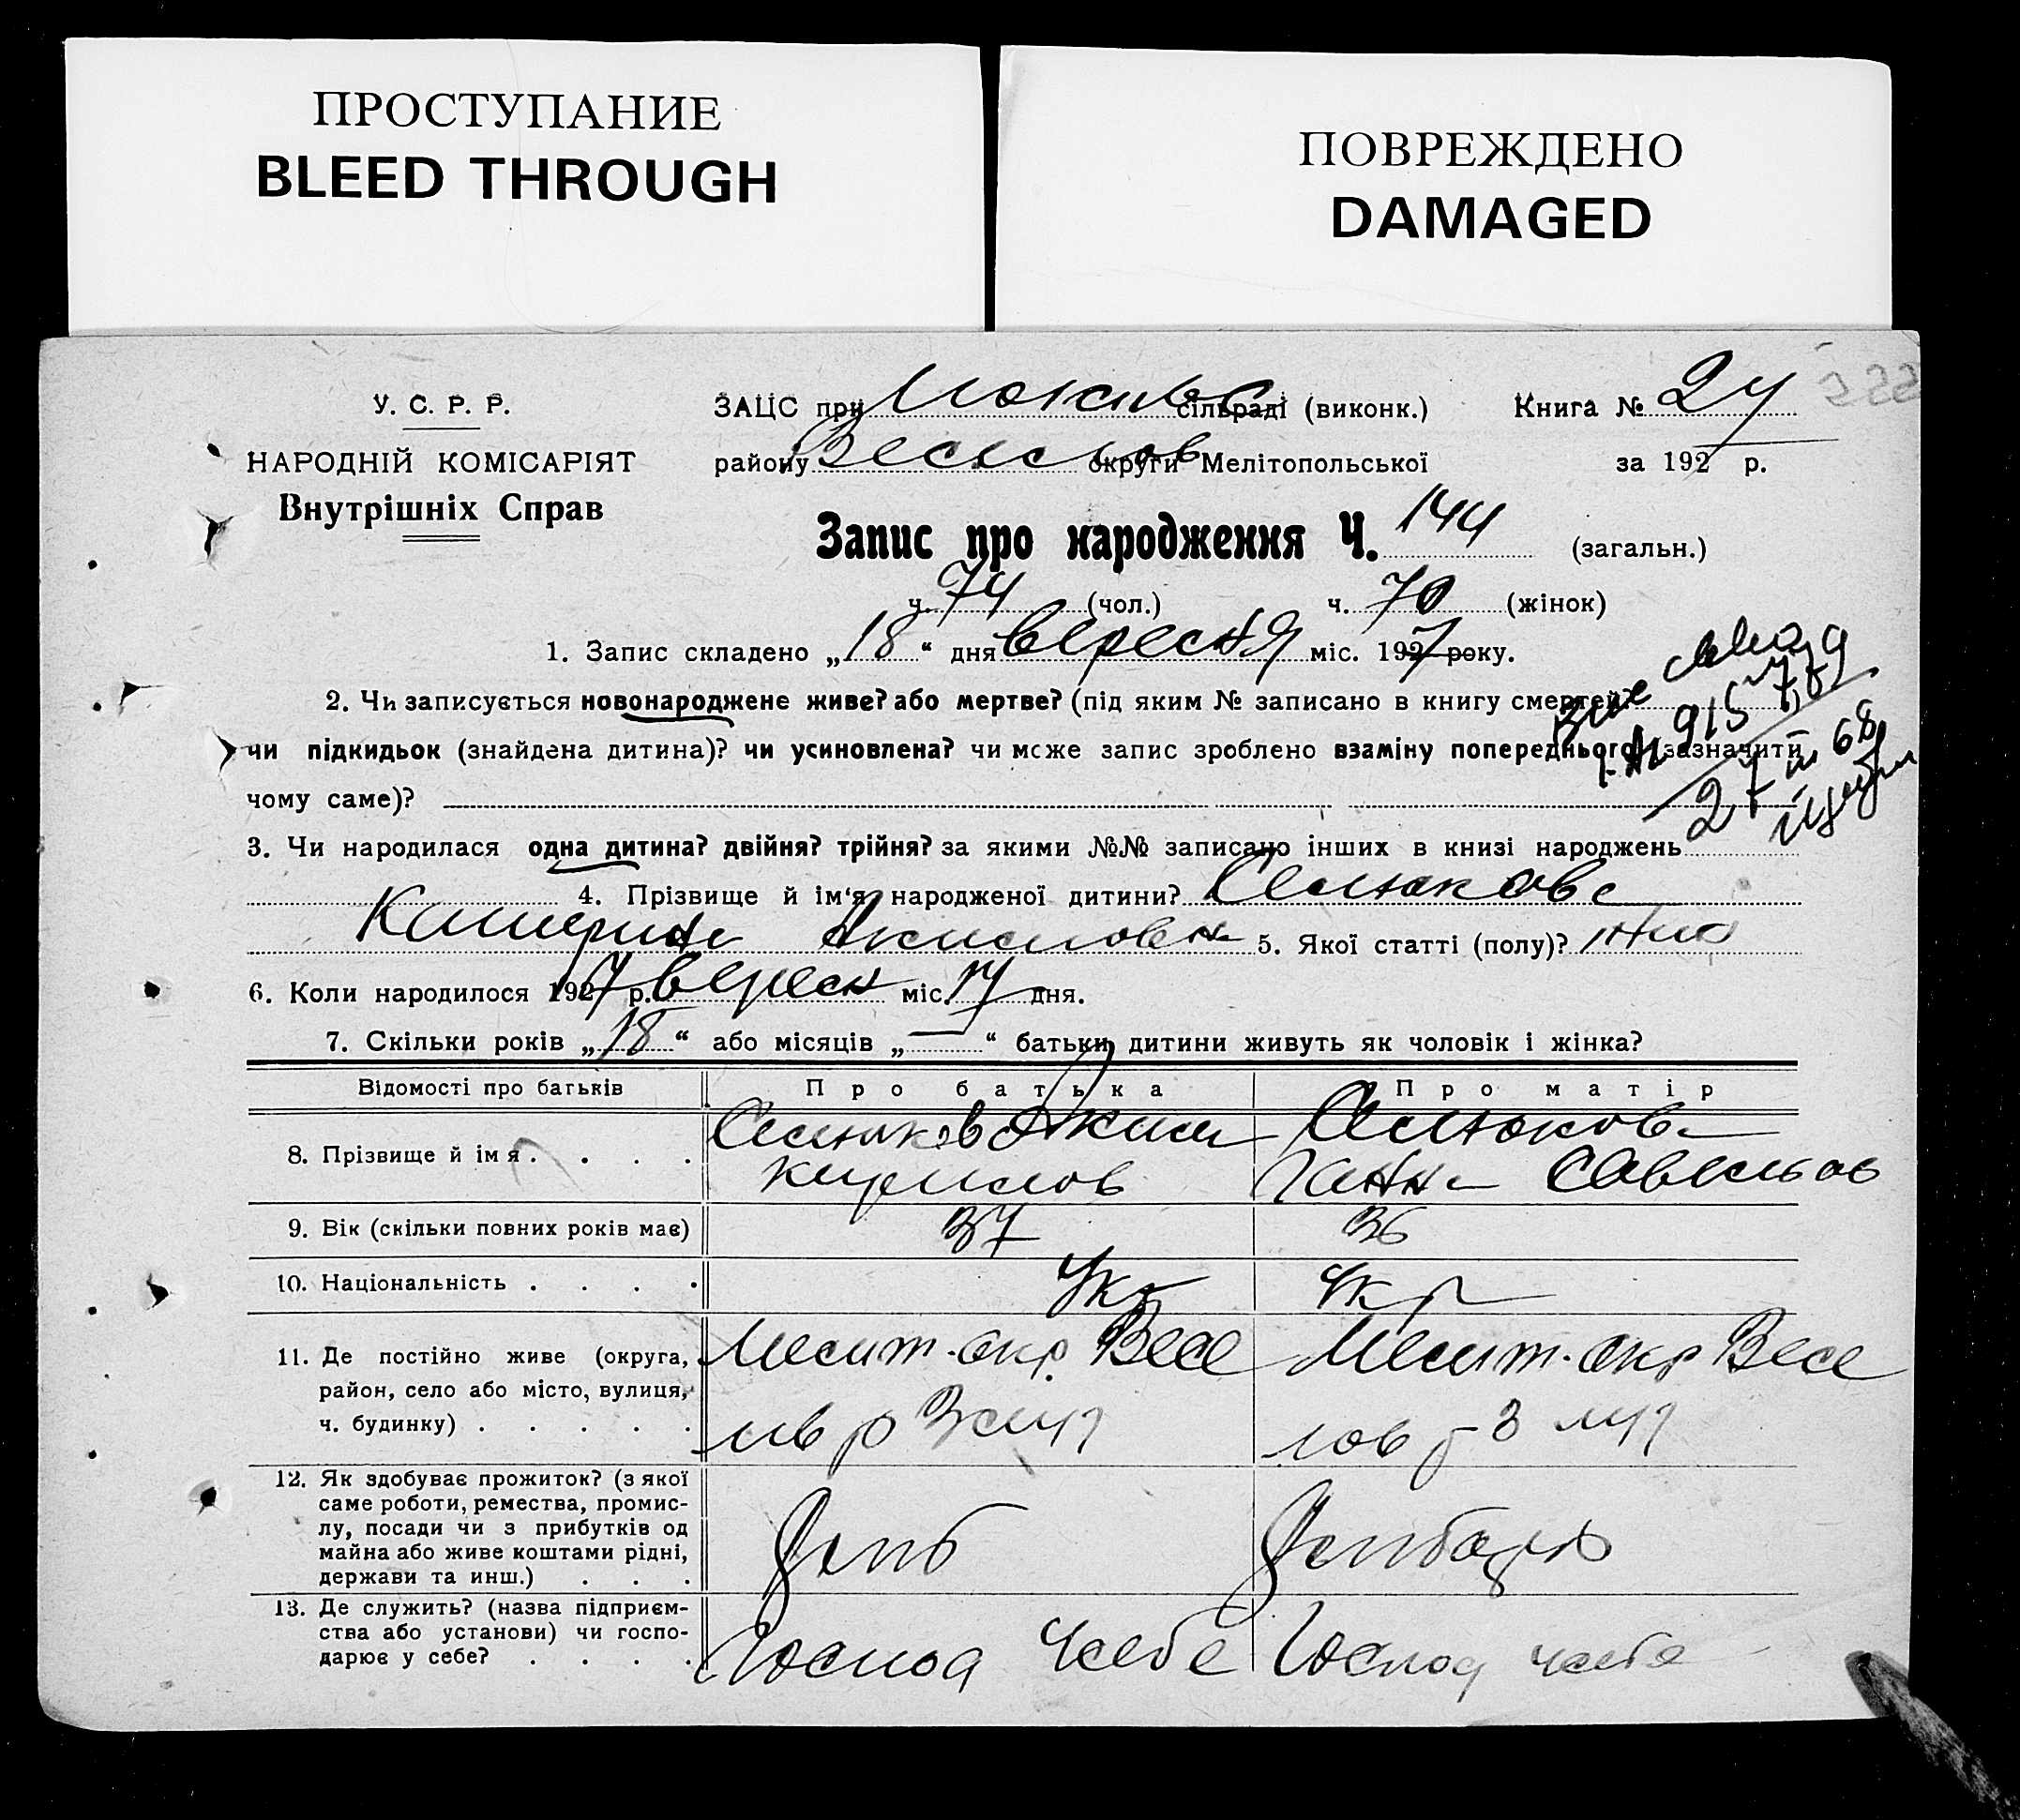 ПРОСТУПАНИЕ
BLEED THROUGH
ПОВРЕЖДЕНО
DAMAGED
У. С. Р. Р.
НАРОДНІЙ КОМІСАРІЯТ
Внутрішніх Справ
ЗАЦС при сільраді (виконк.) Книга № 24
району Весклов округи Мелітопольської за 192 р.
Запис про народження Ч. 144 (загальн.)
ч. 74 (чол.) ч. 70 (жінок)
1. Запис складено „18“ дня вересня міс. 1927 року.
2. Чи записується новонароджене живе? або мертве? (під яким № записано в книгу смертей?
чи підкидьок (знайдена дитина)? чи усиновлена? чи може запис зроблено взаміну попереднього (зазначити
чому саме)?
3. Чи народилася одна дитина? двійня? трійня? за якими №№ записано інших в книзі народжень
4. Прізвище й ім‘я народженої дитини? Семюкова
Катерина Якимовна 5. Якої статті (полу)?
6. Коли народилося 1927 р. вересн міс. 17 дня.
7. Скільки років „18“ або місяців „—“ батьки дитини живуть як чоловік і жінка?
Відомості про батьків Про батька Про матір
8. Прізвище й імя . . . . Семюков Яким Семюкова
Кирилов Ганна Савельев
9. Вік (скільки повних років має) 37 36
10. Національність . . . . Укр Укр
11. Де постійно живе (округа, Мелит. окр. Весе Мелит. окр Весе
район, село або місто, вулиця,
ч. будинку) . . . . . лов р
12. Як здобуває прожиток? (з якої
саме роботи, ремества, промис-
лу, посади чи з прибутків од Хліб Хлібороб
майна або живе коштами рідні,
держави та инш.) . . .
13. Де служить? (назва підприєм-
ства або установи) чи госпо- Господ у себе Господ у себе
дарює у себе? . . . .